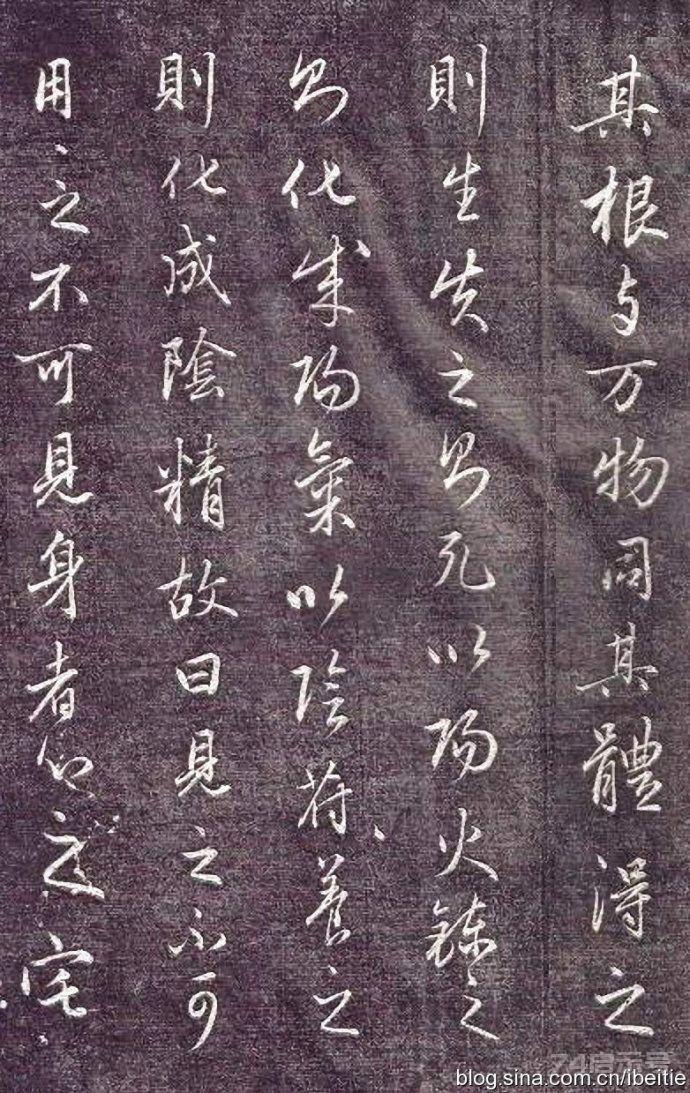 其根与万物同其體得之
則生失之則死以陽火鍊之
則化成陽氣以陰苻養之
則化成陰精故曰見之不可
用〻之不可見身者心之宅
blog.sina.com.cn/lbeitie